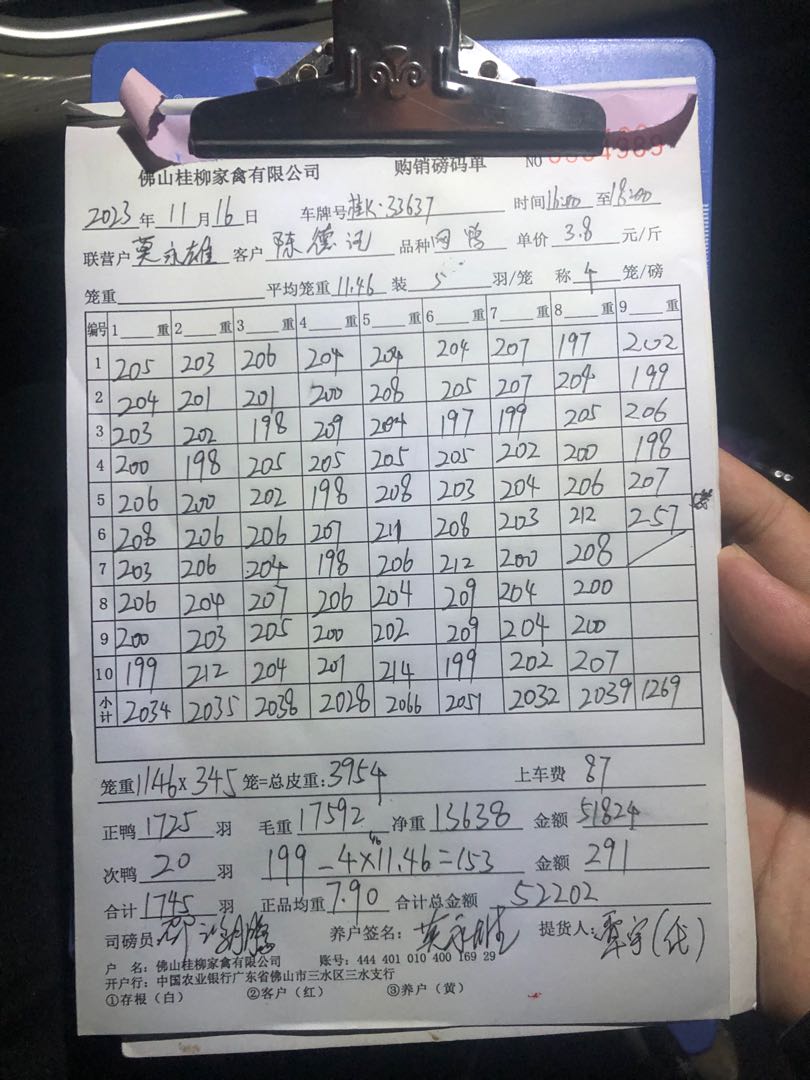 佛山桂柳家禽有限公司 购销磅码单 NO
2023年11月16日 车牌号桂K·33637 时间16:00至18:00
联营户莫永雄客户陈德记品种网鸭单价3.8元/斤
笼重 平均笼重11.46装5羽/笼 称4笼/磅
编号 1重 2重 3重 4重 5重 6重 7重 8重 9重
1 205 203 206 204 204 204 207 197 202
2 204 201 201 200 208 205 207 204 199
3 203 202 198 209 204 197 199 205 206
4 200 198 205 205 205 205 202 200 198
5 206 200 202 198 208 203 204 206 207
6 208 206 206 207 211 208 203 212 257
7 203 206 204 198 206 212 200 208
8 206 204 207 206 204 209 204 200
9 200 203 205 200 202 209 204 200
10 199 212 204 201 214 199 202 207
小计 2034 2035 2038 2028 2066 2051 2032 2039 1269
笼重1146×345笼=总皮重:3954 上车费 87
正鸭1725羽 毛重17592净重13638 金额51824
次鸭20羽 199-4×11.46=153 金额291
46
合计1745羽 正品均重7.90 合计总金额52202
司磅员 养户签名:莫永雄 提货人:覃宇(代)
户 名:佛山桂柳家禽有限公司 账号:444 401 010 400 169 29
开户行:中国农业银行广东省佛山市三水区三水支行
①存根(白) ②客户(红) ③养户(黄)